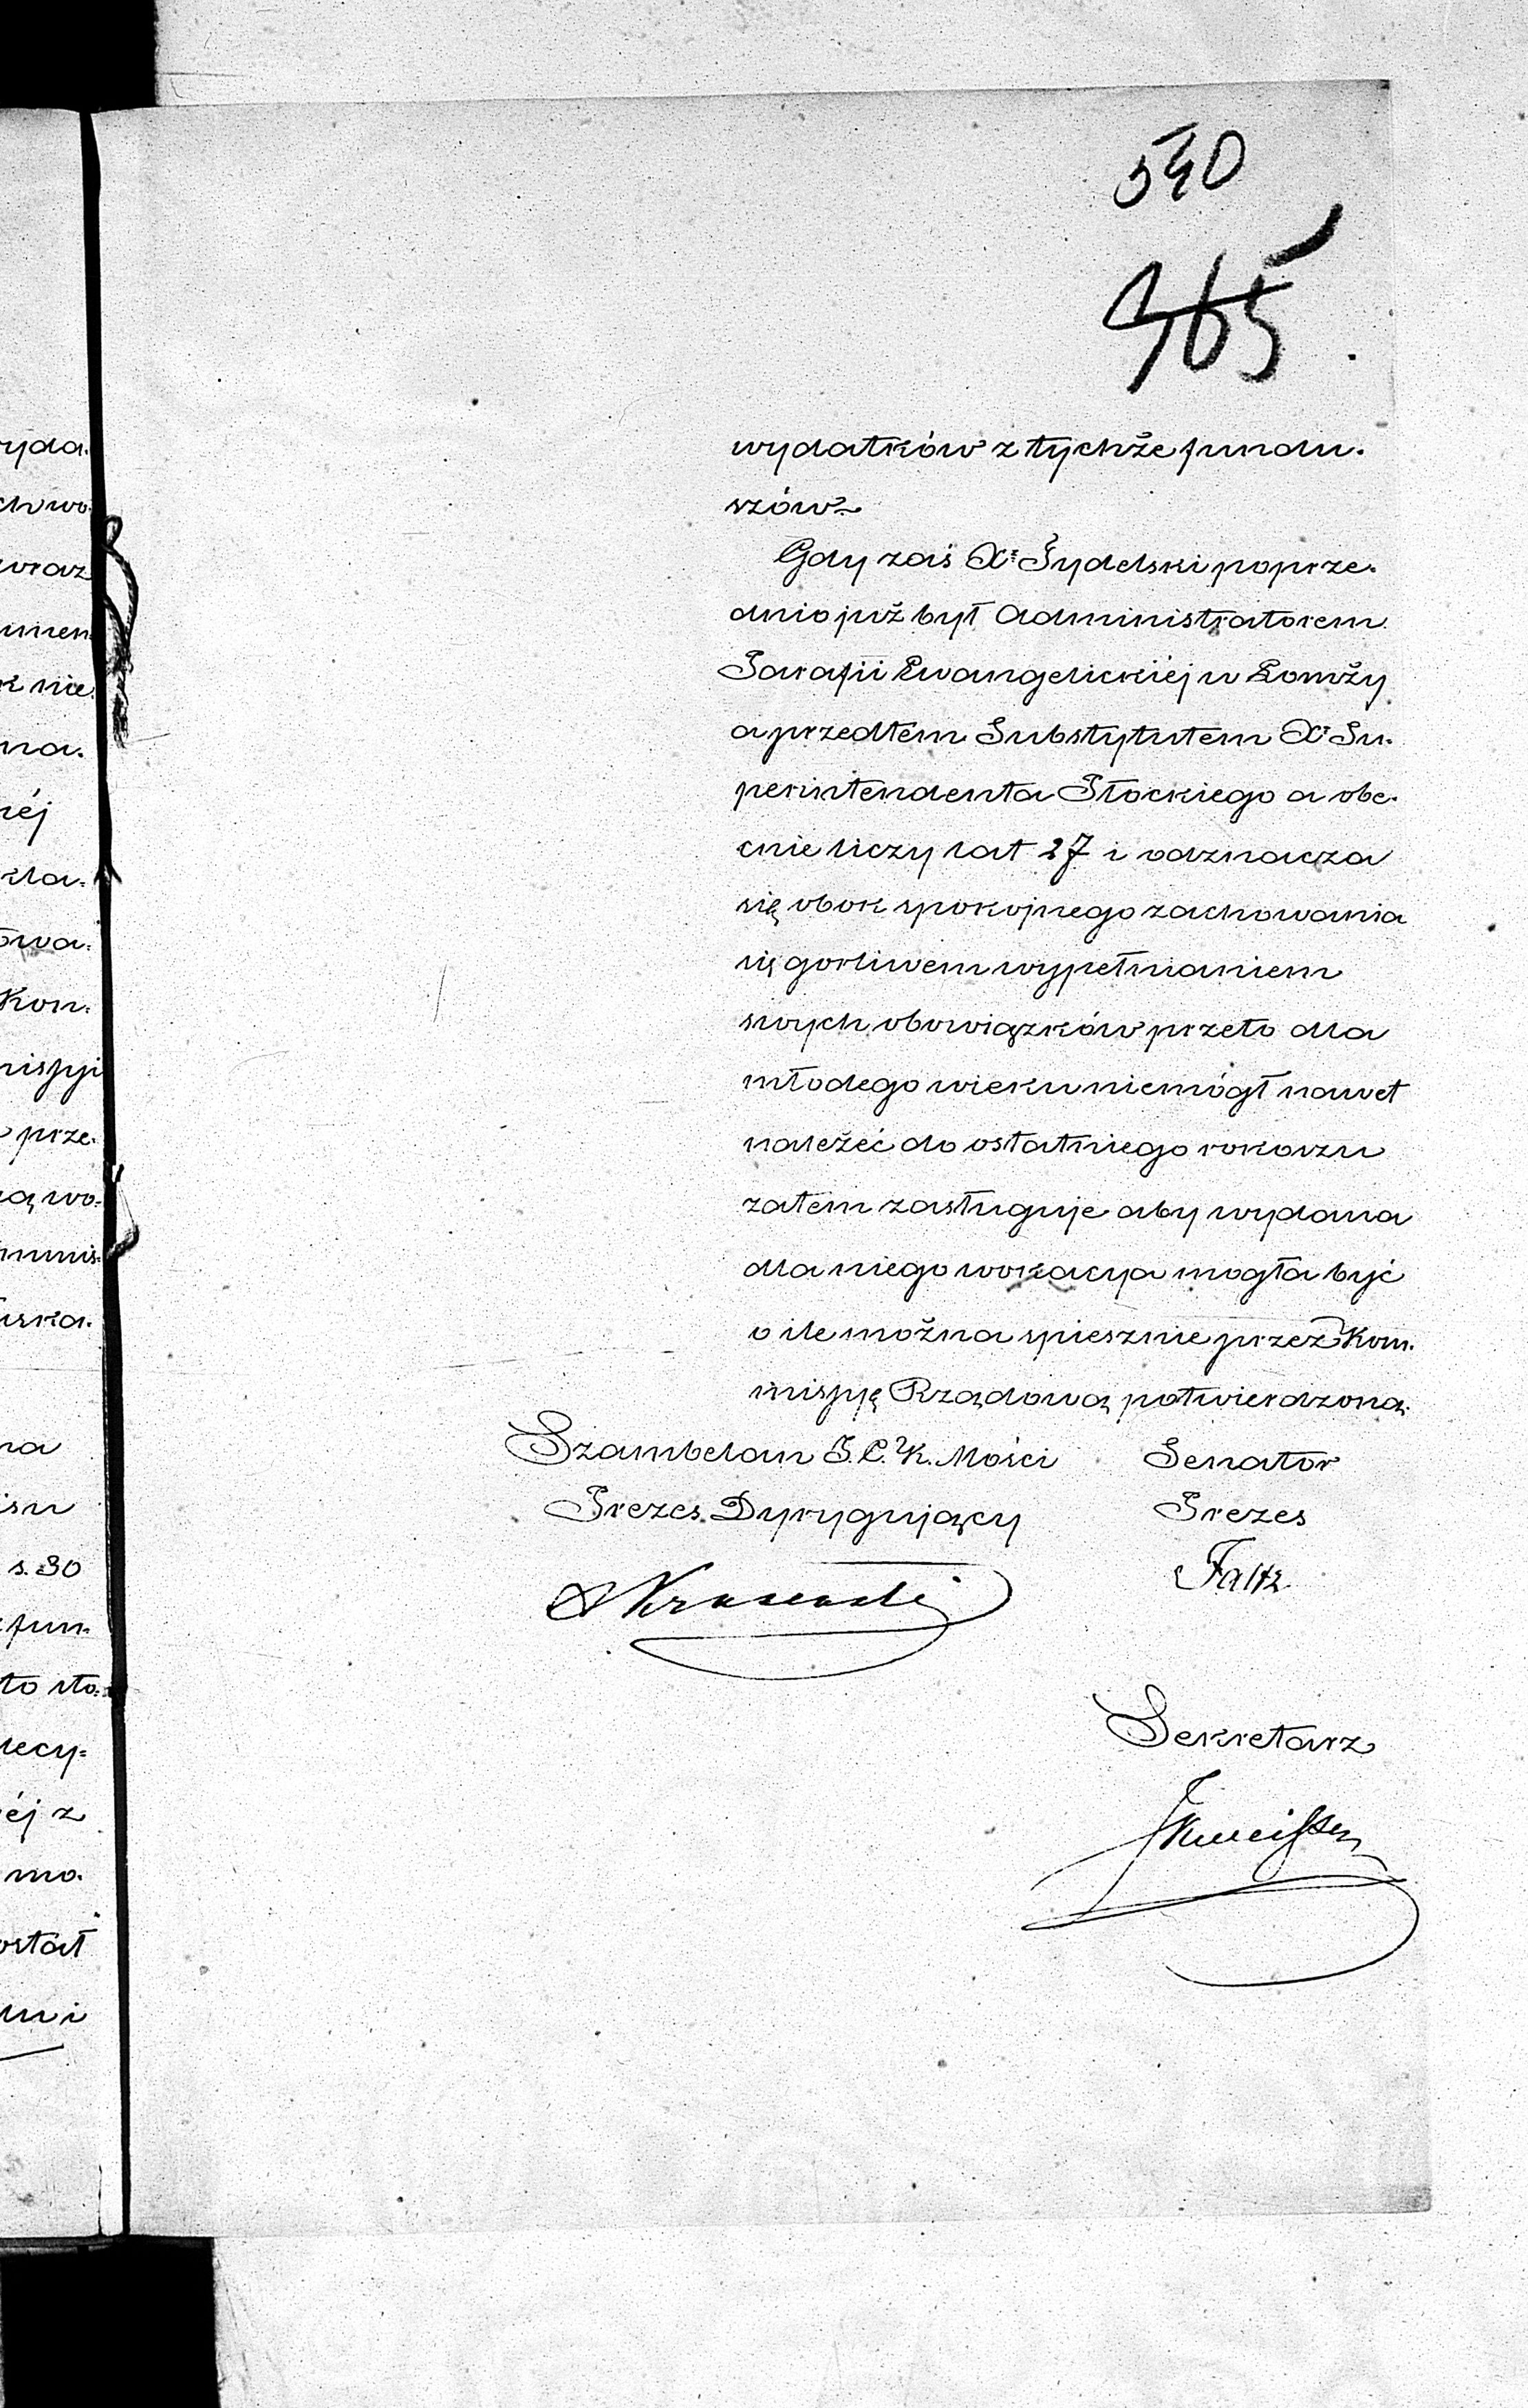 540
365
wydatków z tychże fundu-
szów.
Gdy zaś Xs Tydelski poprze-
dnio już był Administratorem
Parafii Ewangelickiéj w Łomży
a przedtém Substytutem Xs Su-
perintendenta Płockiego a obe-
cnie liczy lat 27 i odznacza
się obok spokojnego zachowania
się gorliwem wypełnianiem
swych obowiązków przeto dla
młodego wieku niemógł nawet
należéć do ostatniego rokoszu
zatém zasługuje aby wydana
dla niego wokacya mogła być
o ile można spiesznie przez Kom-
missyę Rządową potwierdzona.
Szambelan J. C. K. Mości Senator
Prezes Dyrygujący Prezes
Krusenski Faltz
Sekretarz
yda-
ch wo-
wraz
umen-
k nie
na-
néj
kla-
owa-
Kon-
missyi
prze-
ą wo-
mmis-
ńska-
na
isu
s. 30
fun-
to sto-
decy-
éj z
mo-
ostał
mi